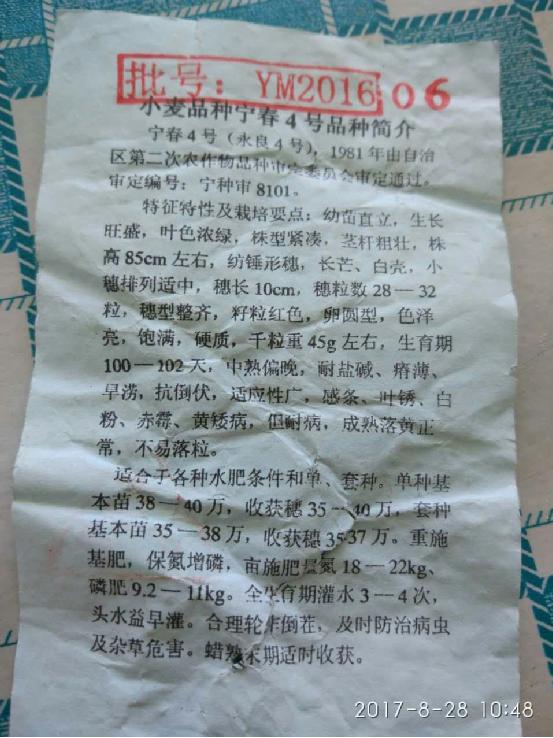 批号：YM2016 06
小麦品种宁春4号品种简介
宁春4号（永良4号），1981年由自治
区第二次农作物品种审定委员会审定通过。
审定编号：宁种审8101。
特征特性及栽培要点：幼苗直立，生长
旺盛，叶色浓绿，株型紧凑，茎杆粗壮，株
高85cm左右，纺锤形穗，长芒、白壳，小
穗排列适中，穗长10cm，穗粒数28—32
粒，穗型整齐，籽粒红色，卵圆型，色泽
亮，饱满，硬质，千粒重45g左右，生育期
100—102天，中熟偏晚，耐盐碱、瘠薄、
旱涝，抗倒伏，适应性广，感条、叶锈、白
粉、赤霉、黄矮病，但耐病，成熟落黄正
常，不易落粒。
适合于各种水肥条件和单、套种。单种基
本苗38—40万，收获穗35—40万，套种
基本苗35—38万，收获穗35 37万。重施
基肥，保氮增磷，亩施肥量氮18—22kg、
磷肥9.2—11kg。全生育期灌水3—4次，
头水益早灌。合理轮作倒茬，及时防治病虫
及杂草危害。蜡熟末期适时收获。
2017-8-28 10:48